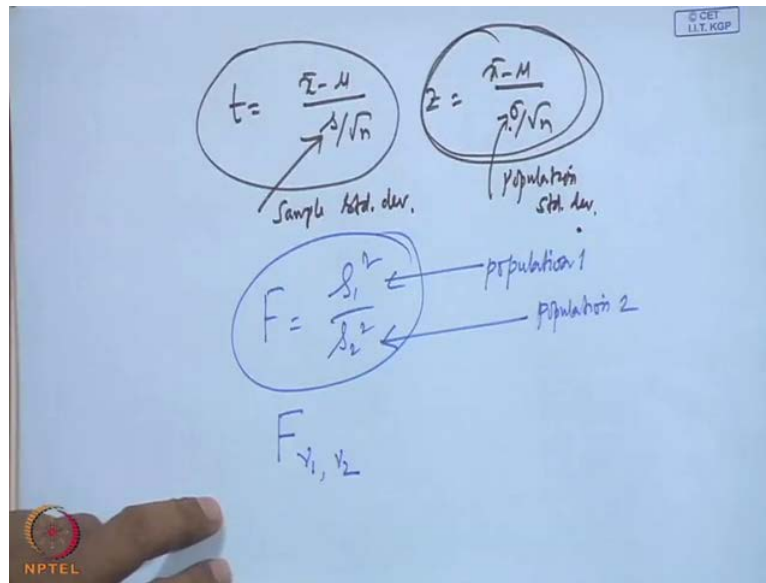 © CET
I.I.T. KGP
t = x̄ - μ / s/√n
z = x̄ - μ / σ/√n
Sample std. dev.
population std. dev.
F = s₁² / s₂²
population 1
population 2
F ν₁, ν₂
NPTEL